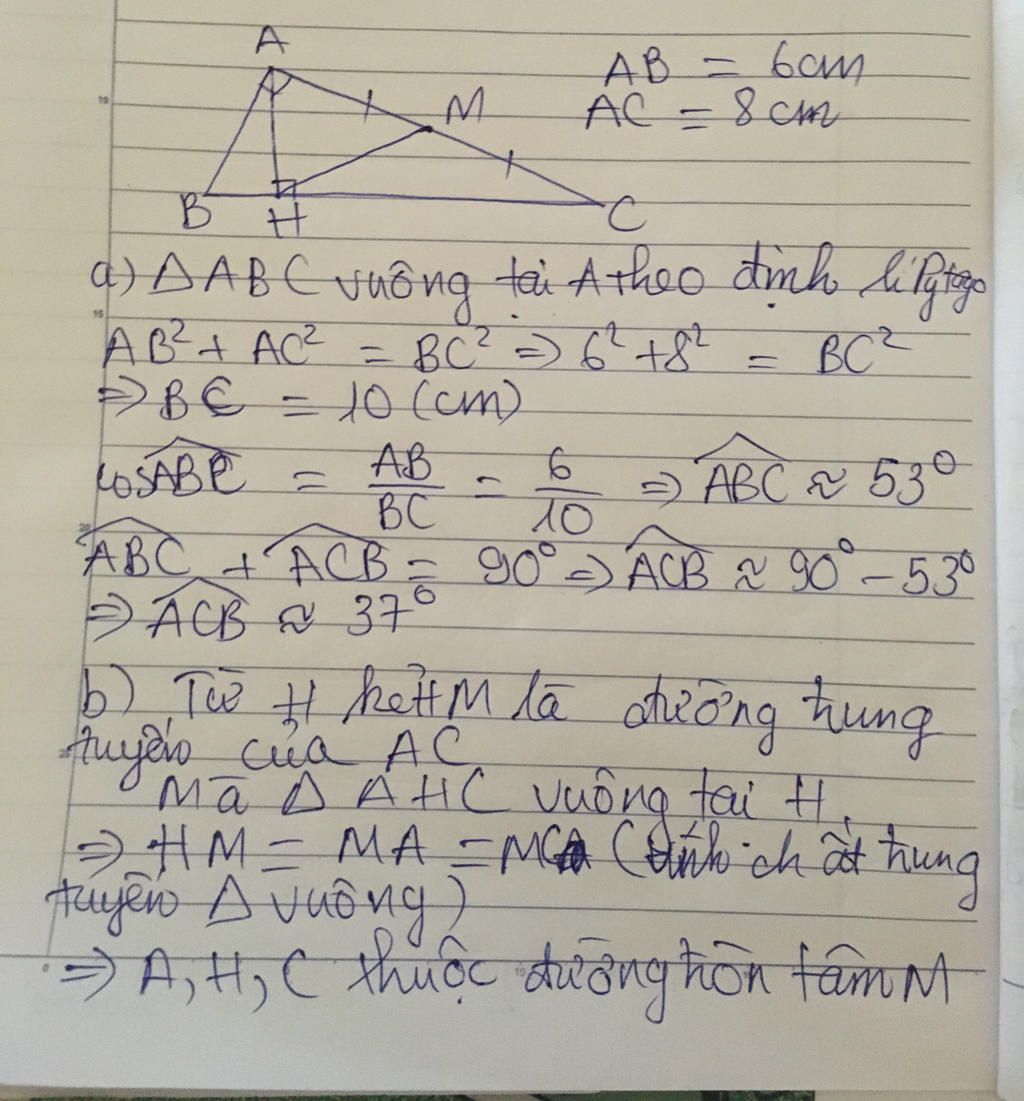 A
AB = 6cm
M
AC = 8cm
B H C
a) Δ ABC vuông tại A theo định lí Pytago
AB² + AC² = BC² ⇒ 6² + 8² = BC²
⇒ BC = 10 (cm)
cosABC = AB/BC = 6/10 ⇒ ABC ≈ 53°
ABC + ACB = 90° ⇒ ACB ≈ 90° - 53°
⇒ ACB ≈ 37°
b) Từ H kẻ HM là đường trung
tuyến của AC
Mà Δ AHC vuông tại H,
⇒ HM = MA = MC (tính chất trung
tuyến Δ vuông)
⇒ A, H, C thuộc đường tròn tâm M